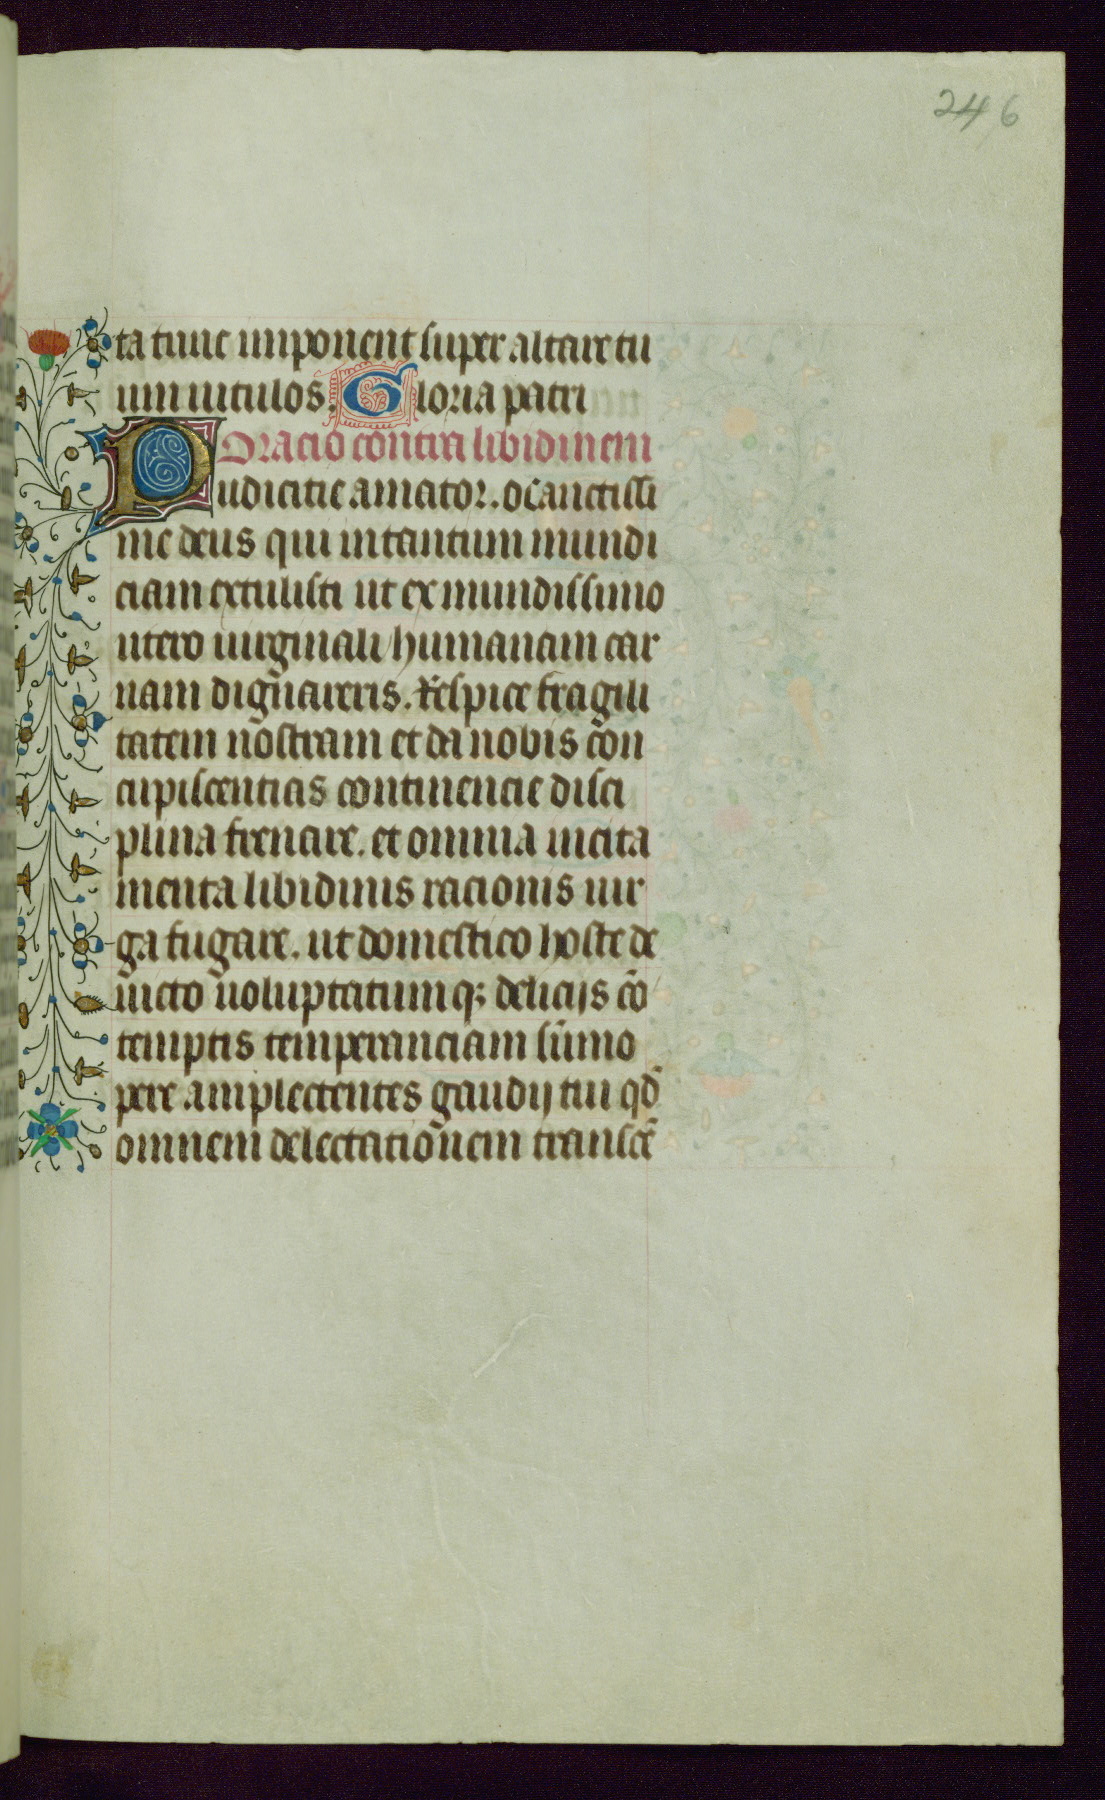 246
ta tunc imponent super altare tu
um uitulos. Gloria patri
Oracio contra libidinem
Pudicitie amator. o sanctissi
me deus qui intantum mundi
ciam extulisti ut ex mundissimo
utero uirginali humanam car
nam dign̄aueris. Respice fragili
tatem nostram et da nobis con
cupiscentias continencie disci
plina frenare. et omnia incita
menta libidinis racionis uir
ga fugare. ut domestico hoste de
uicto uoluptatumqꝫ delicijs cō
temptis temperanciam sūmo
pere amplectentes gaudij tui qd̄
omnem delectationem transcē